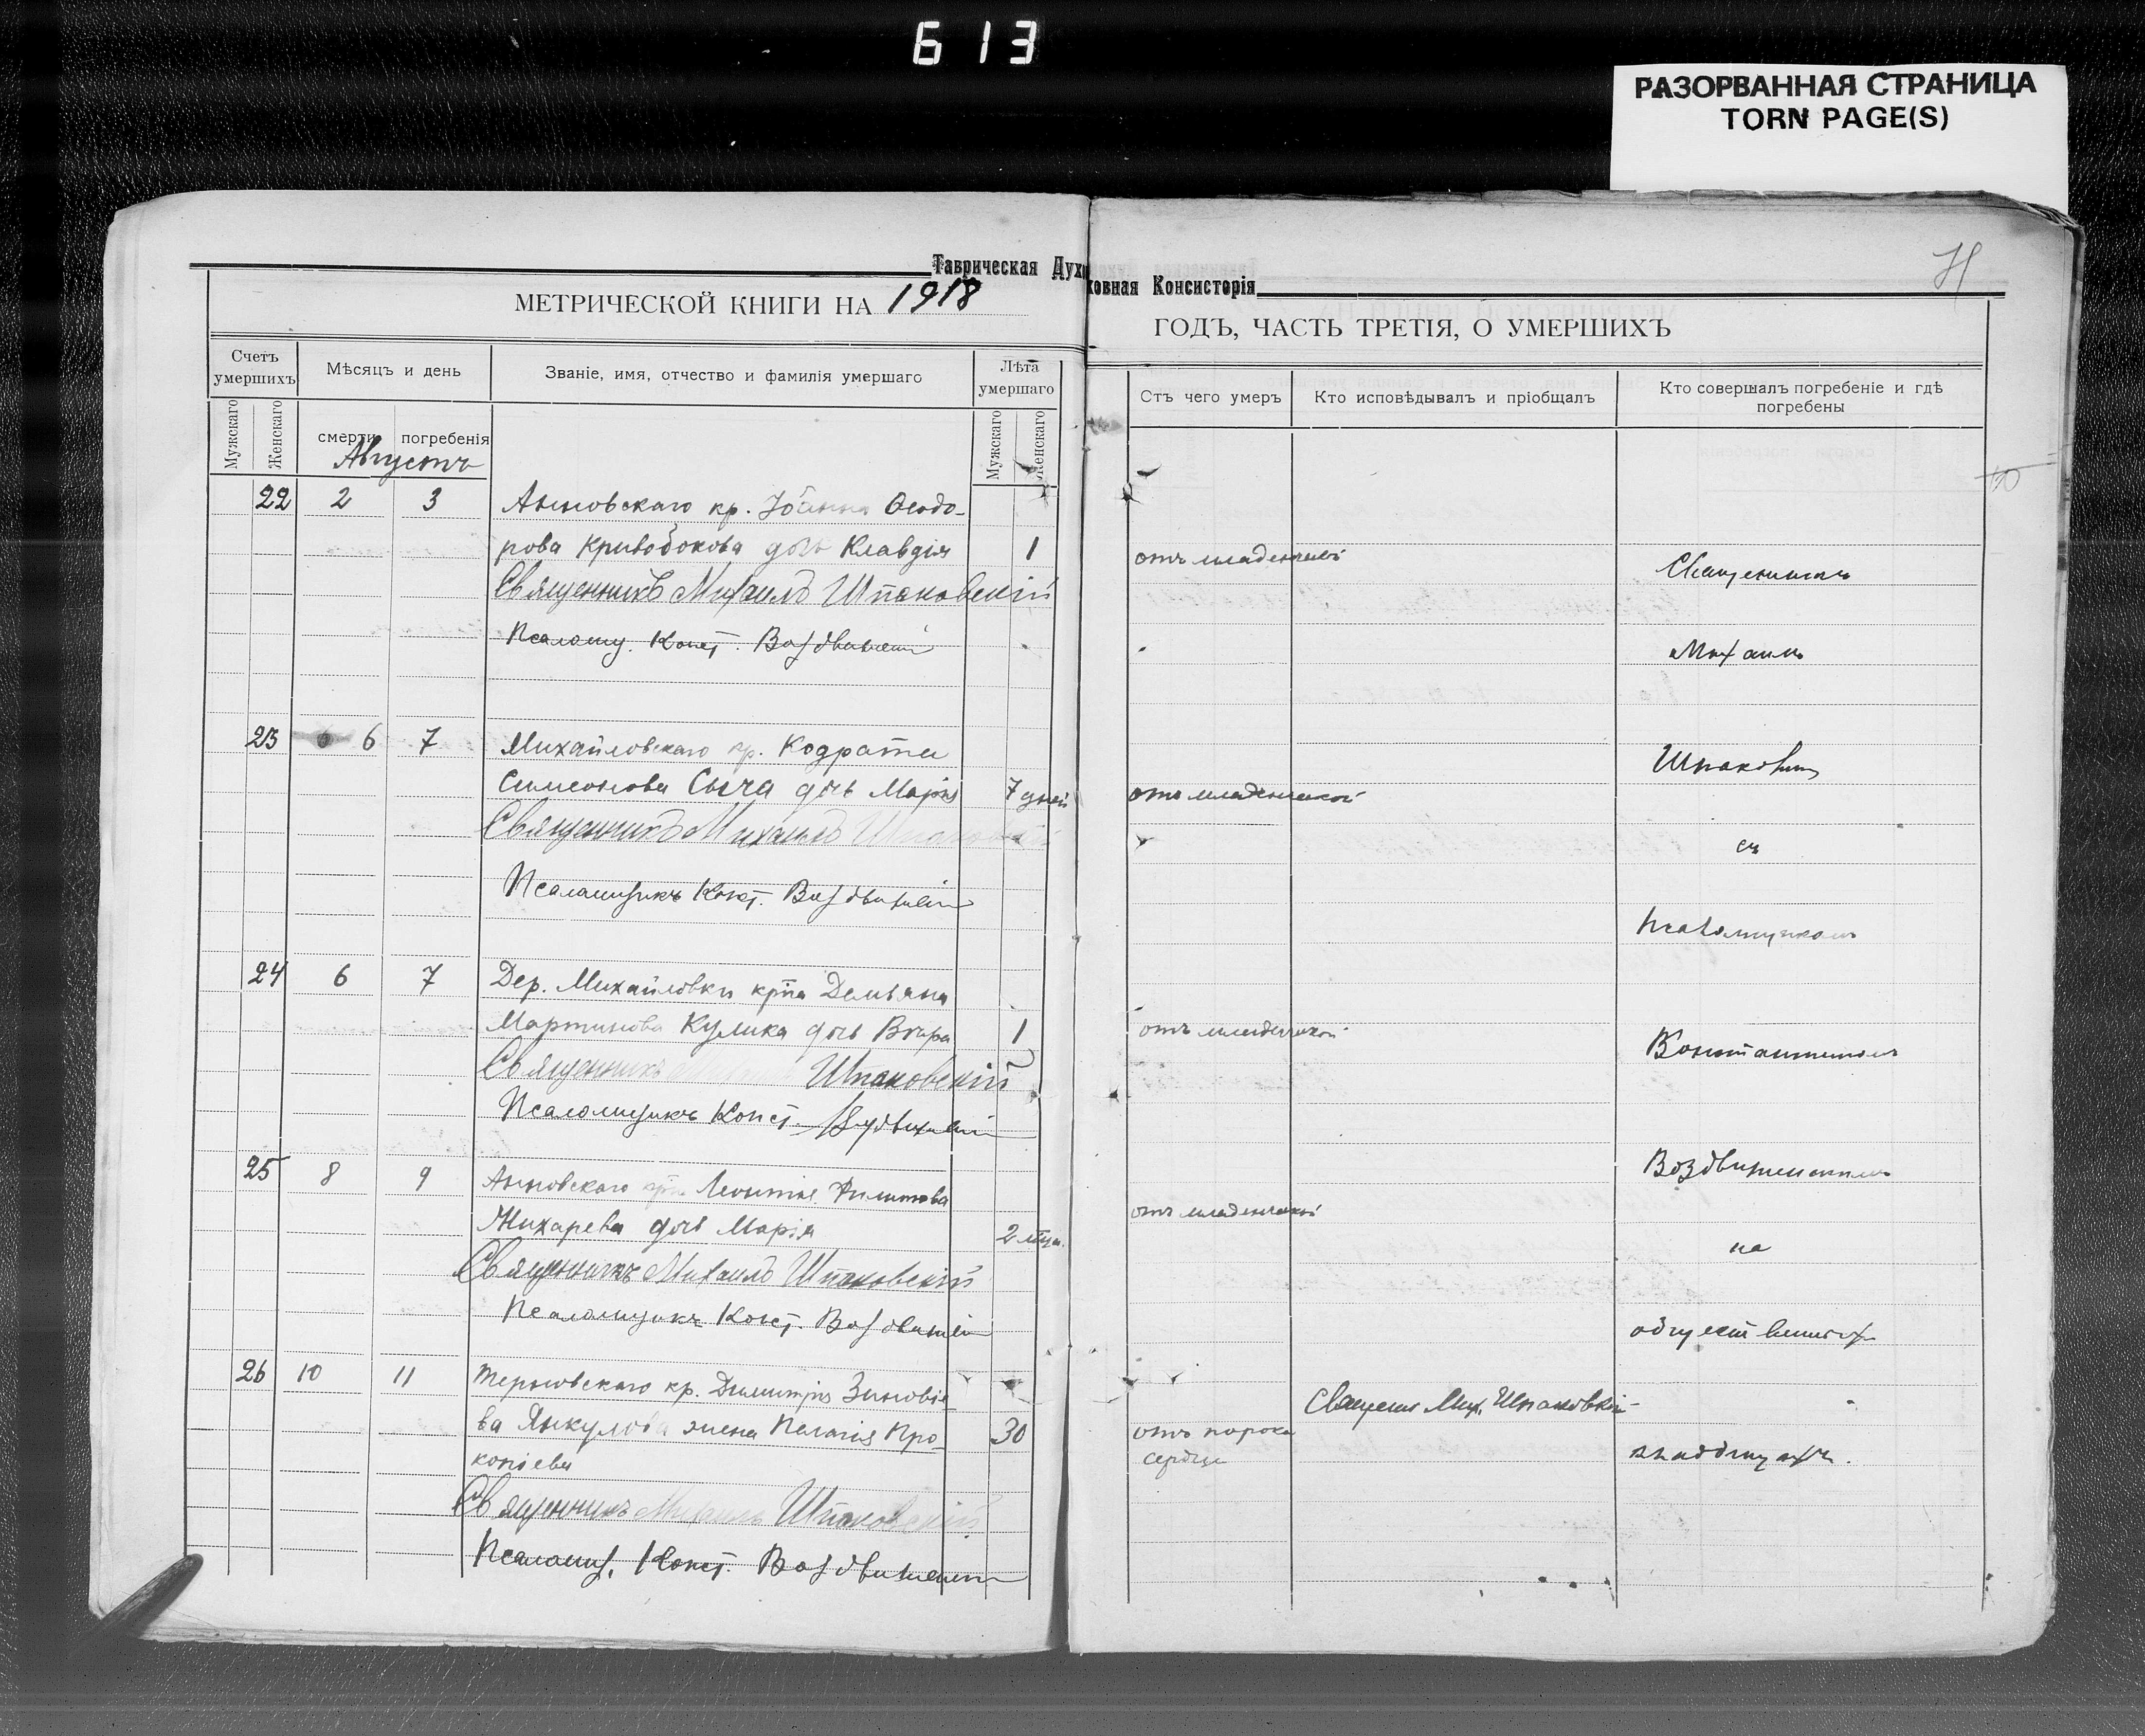 613
РАЗОРВАННАЯ СТРАНИЦА
TORN PAGE(S)
Таврическая Духовная Консисторія
МЕТРИЧЕСКОЙ КНИГИ НА 1918
ГОДЪ, ЧАСТЬ ТРЕТІЯ, О УМЕРШИХЪ
Счетъ умершихъ
Мѣсяцъ и день
Званіе, имя, отчество и фамилія умершаго
Лѣта умершаго
Мужскаго
Женскаго
смерти
погребенія
Мужскаго
Женскаго
Стъ чего умеръ
Кто исповѣдывалъ и пріобщалъ
Кто совершалъ погребеніе и гдѣ погребены
Августъ
22 2 3 Анновскаго кр. Іоанна Ѳеодо-
рова Кривобокова дочь Клавдія 1 отъ младенческой
Священникъ Михаилъ Шпаковскій
Псаломщ. Конст. Воздвиженскій
23 6 7 Михайловскаго кр. Кодрата
Симеонова Сыча дочь Марія 7 дней отъ младенческой
Священникъ Михаилъ Шпаковскій
Псаломщикъ Конст. Воздвиженскій
24 6 7 Дер. Михайловки кр-на Демьяна
Мартинова Кулика дочь Вѣра 1 отъ младенческой
Священникъ Шпаковскій
Псаломщикъ Конст. Воздвиженскій
25 8 9 Анновскаго Леонтія Филиппова
Жихарева дочь Марія 2 мѣся. отъ младенческой
Священникъ Михаилъ Шпаковскій
Псаломщикъ Конст. Воздвиженскій
26 10 11 Терновскаго кр. Димитрія Зиновіе-
ва Янкулова жена Пелагія Про- 30 отъ порока
копіева сердца
Священ. Мих. Шпаковскій
Священникъ Михаилъ Шпаковскій
Псаломщ. Конст. Воздвиженскій
Священникъ
Михаилъ
Шпаковскій
съ
псаломщикомъ
Константиномъ
Воздвиженскимъ
на
общественныхъ
кладбищахъ.